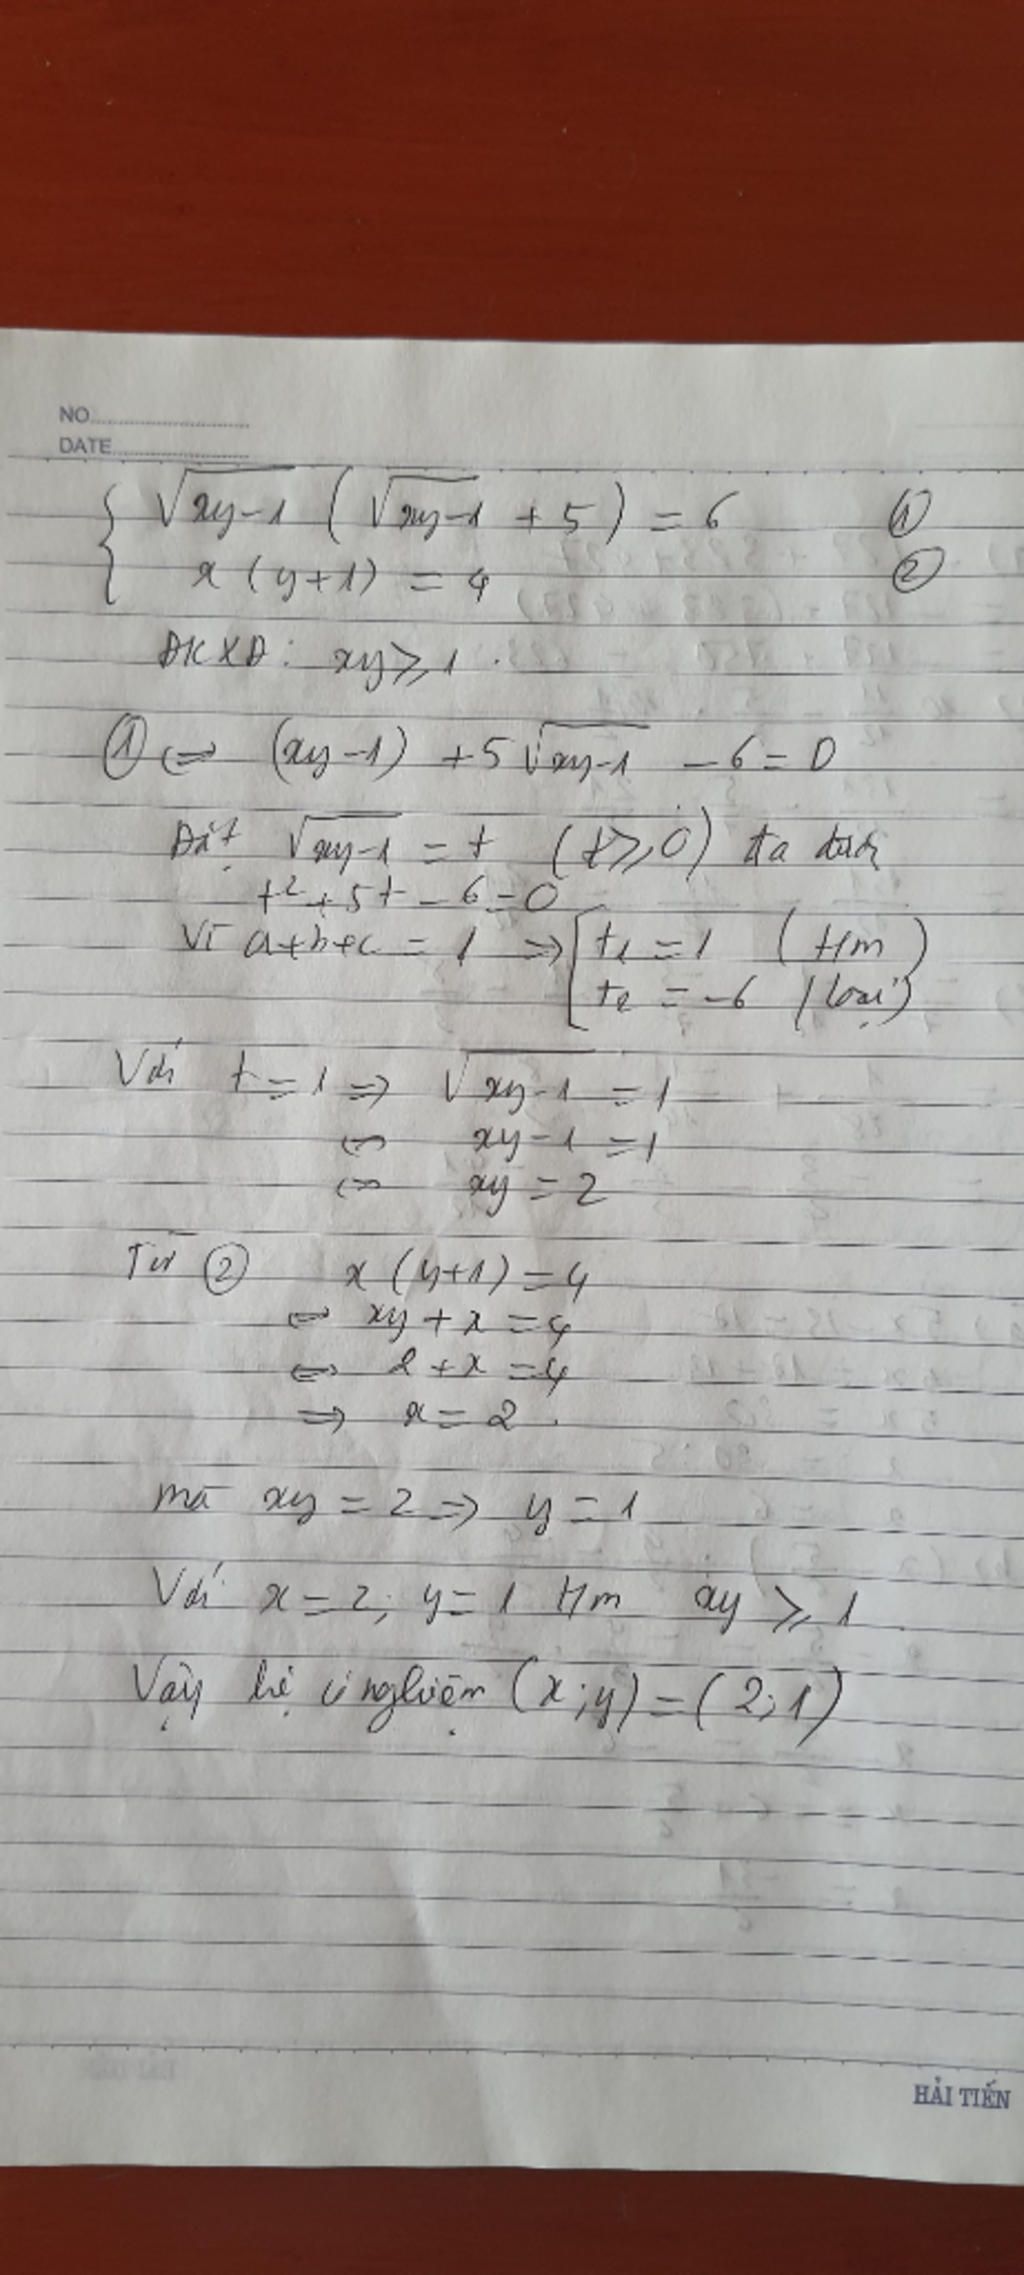 NO.
DATE
√xy-1 ( √xy-1 + 5 ) = 6 ①
x (y+1) = 4 ②
ĐKXĐ: xy ⩾ 1.
① ⇔ (xy-1) + 5√xy-1 - 6 = 0
Đặt √xy-1 = t (t ⩾ 0) ta được
t² + 5t - 6 = 0
Vì a+b+c = 1 ⇒ [ t₁ = 1 (t/m)
t₂ = -6 (loại)
Với t = 1 ⇒ √xy-1 = 1
⇔ xy-1 = 1
⇔ xy = 2
Từ ② x (y+1) = 4
⇔ xy + x = 4
⇔ 2 + x = 4
⇒ x = 2.
mà xy = 2 ⇒ y = 1
Với x = 2; y = 1 t/m xy ⩾ 1
Vậy hệ có nghiệm (x;y) = (2;1)
HẢI TIẾN